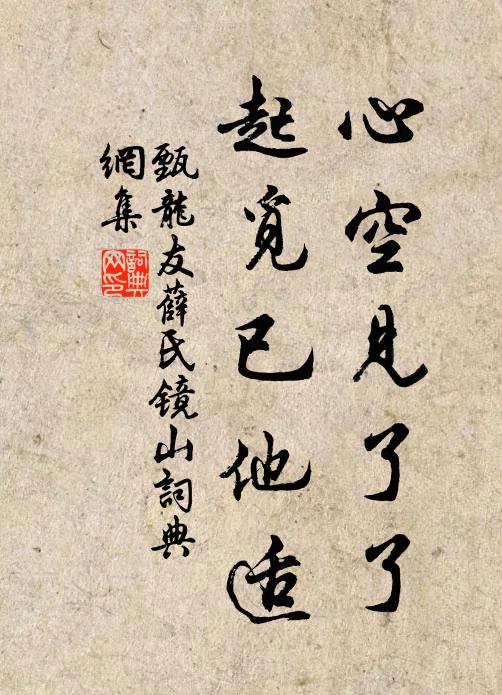 心空見了了
起覓已他适
甄龍友薛氏镜山詞典
網集
詞典網印